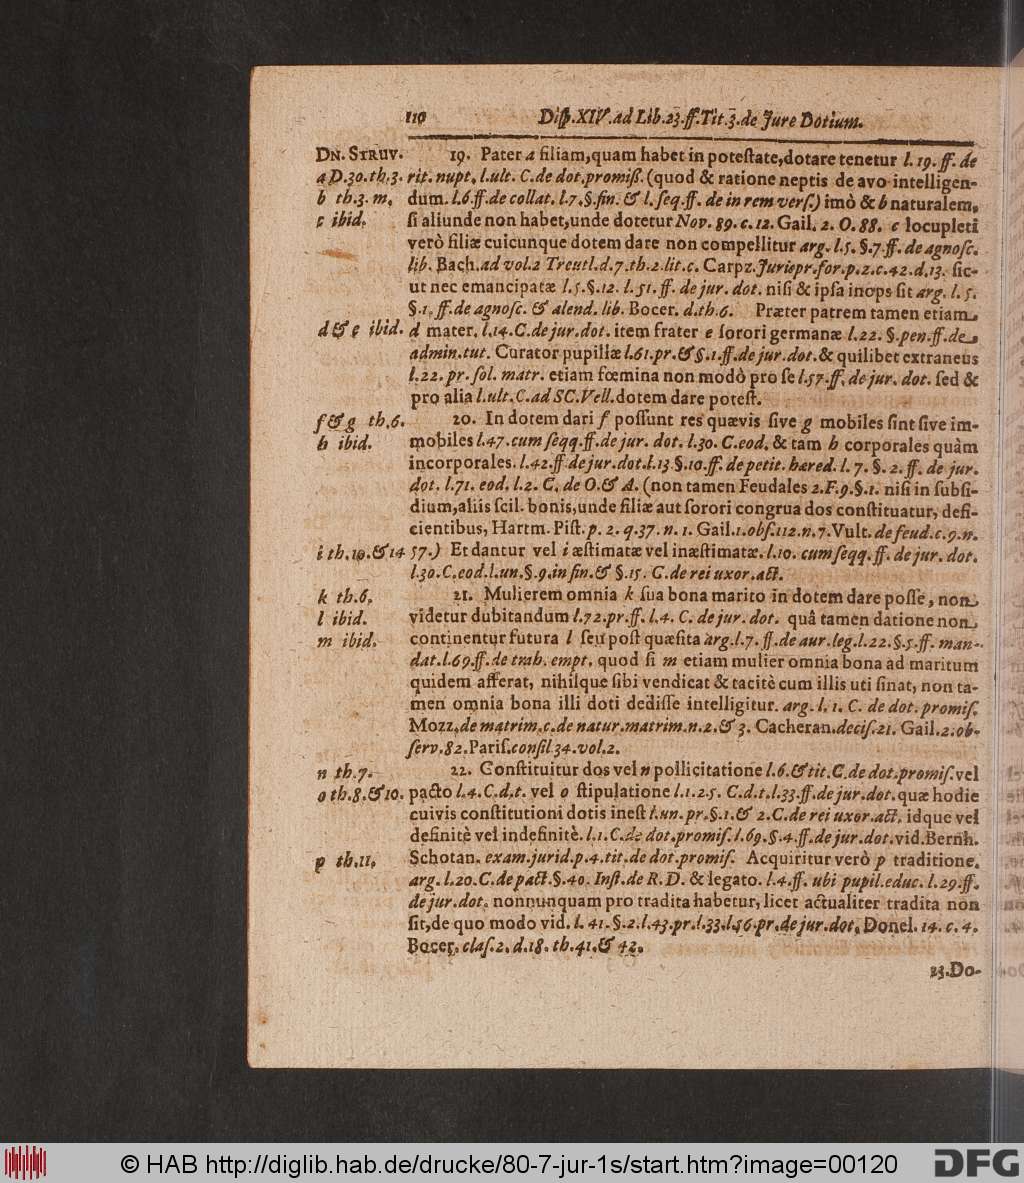 110 Disp. XIV. ad Lib. 23. ff. Tit. 3. de Jure Dotium.
DN. STRUV. 19. Pater a filiam, quam habet in potestate, dotare tenetur l. 19. ff. de
a D. 30. th. 3. rit. nupt. l. ult. C. de dot. promiss. (quod & ratione neptis de avo intelligen-
b th. 3. m. dum. l. 6. ff. de collat. l. 7. §. fin. & l. seq. ff. de in rem vers.) imò & b naturalem,
c ibid. si aliunde non habet, unde dotetur Nov. 89. c. 12. Gail. 2. O. 88. c locupleti
verò filiæ cuicunque dotem dare non compellitur arg. l. 5. §. 7. ff. de agnosc.
lib. Bach. ad vol. 2 Treutl. d. 7. th. 2. lit. c. Carpz. Jurispr. for. p. 2. c. 42. d. 13. sic-
ut nec emancipatæ l. 5. §. 12. l. 51. ff. de jur. dot. nisi & ipsa inops sit arg. l. 5.
§. 1. ff. de agnosc. & alend. lib. Bocer. d. th. 6. Præter patrem tamen etiam
d & e ibid. d mater. l. 14. C. de jur. dot. item frater e sorori germanæ l. 22. §. pen. ff. de
admin. tut. Curator pupillæ l. 61. pr. & §. 1. ff. de jur. dot. & quilibet extraneus
l. 22. pr. sol. matr. etiam fœmina non modò pro se l. 57. ff. de jur. dot. sed &
pro alia l. ult. C. ad SC. Vell. dotem dare potest.
f & g th. 6. 20. In dotem dari f possunt res quævis sive g mobiles sint sive im-
h ibid. mobiles l. 47. cum seqq. ff. de jur. dot. l. 30. C. eod. & tam h corporales quàm
incorporales. l. 42. ff de jur. dot. l. 13 §. 10. ff. de petit. hæred. l. 7. §. 2. ff. de jur.
dot. l. 71. eod. l. 2. C. de O. & A. (non tamen Feudales 2. F. 9. §. 1. nisi in subsi-
dium, aliis scil. bonis, unde filiæ aut sorori congrua dos constituatur, defi-
cientibus, Hartm. Pist. p. 2. q. 37. n. 1. Gail. 1. obs. 112. n. 7. Vult. de feud. c. 9. n.
i th. 10. & 14 57.) Et dantur vel i æstimatæ vel inæstimatæ. l. 10. cum seqq. ff. de jur. dot.
l. 30. C. eod. l. un. §. 9. in fin. & §. 15. C. de rei uxor. act.
k th. 6. 21. Mulierem omnia k sua bona marito in dotem dare posse, non
l ibid. videtur dubitandum l. 72. pr. ff. l. 4. C. de jur. dot. quâ tamen datione non
m ibid. continentur futura l seu post quæsita arg. l. 7. ff. de aur. leg. l. 22. §. 5. ff. man-
dat. l. 69. ff. de trah. empt. quod si m etiam mulier omnia bona ad maritum
quidem afferat, nihilque sibi vendicat & tacitè cum illis uti sinat, non ta-
men omnia bona illi doti dedisse intelligitur. arg. l. 1. C. de dot. promis.
Mozz. de matrim. c. de natur. matrim. n. 2. & 3. Cacheran. decis. 21. Gail. 2. ob-
serv. 82. Paris. consil 34. vol. 2.
n th. 7. 22. Constituitur dos vel n pollicitatione l. 6. & tit. C. de dot. promis. vel
o th. 8. & 10. pacto l. 4. C. d. t. vel o stipulatione l. 1. 2. 5. C. d. t. l. 33. ff. de jur. dot. quæ hodie
cuivis constitutioni dotis inest l. un. pr. §. 1. & 2. C. de rei uxor. act. idque vel
definitè vel indefinitè. l. 1. C. de dot. promis. l. 69. §. 4. ff. de jur. dot. vid. Bernh.
p th. 11. Schotan. exam. jurid. p. 4. tit. de dot. promis. Acquiritur verò p traditione.
arg. l. 20. C. de pact. §. 40. Inst. de R. D. & legato. l. 4. ff. ubi pupil. educ. l. 29. ff.
de jur. dot. nonnunquam pro tradita habetur, licet actualiter tradita non
sit, de quo modo vid. l. 41. §. 2. l. 43. pr. l. 33. l. 56. pr. de jur. dot. Donel. 14. c. 4.
Bocer. clas. 2. d. 18. th. 41. & 42.
23. Do-
© HAB http://diglib.hab.de/drucke/80-7-jur-1s/start.htm?image=00120
DFG